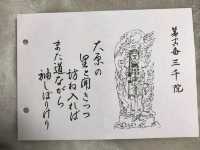 第六番 三千院
大原の
里と聞きつつ
訪ね入れば
また道ながら
袖しぼりけり